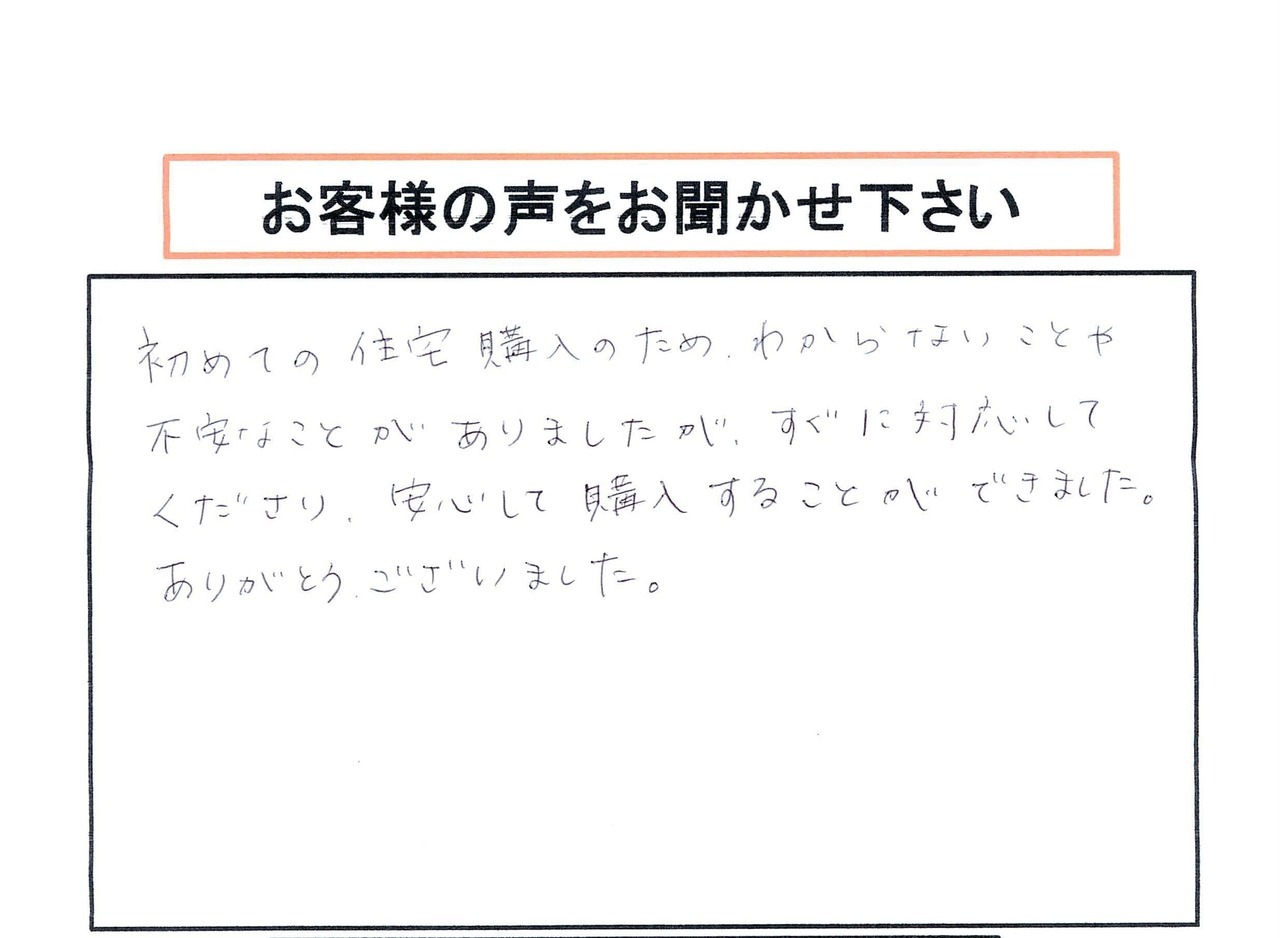 お客様の声をお聞かせ下さい
初めての住宅購入のため、わからないことや
不安なことがありましたが、すぐに対応して
くださり、安心して購入することができました。
ありがとうございました。